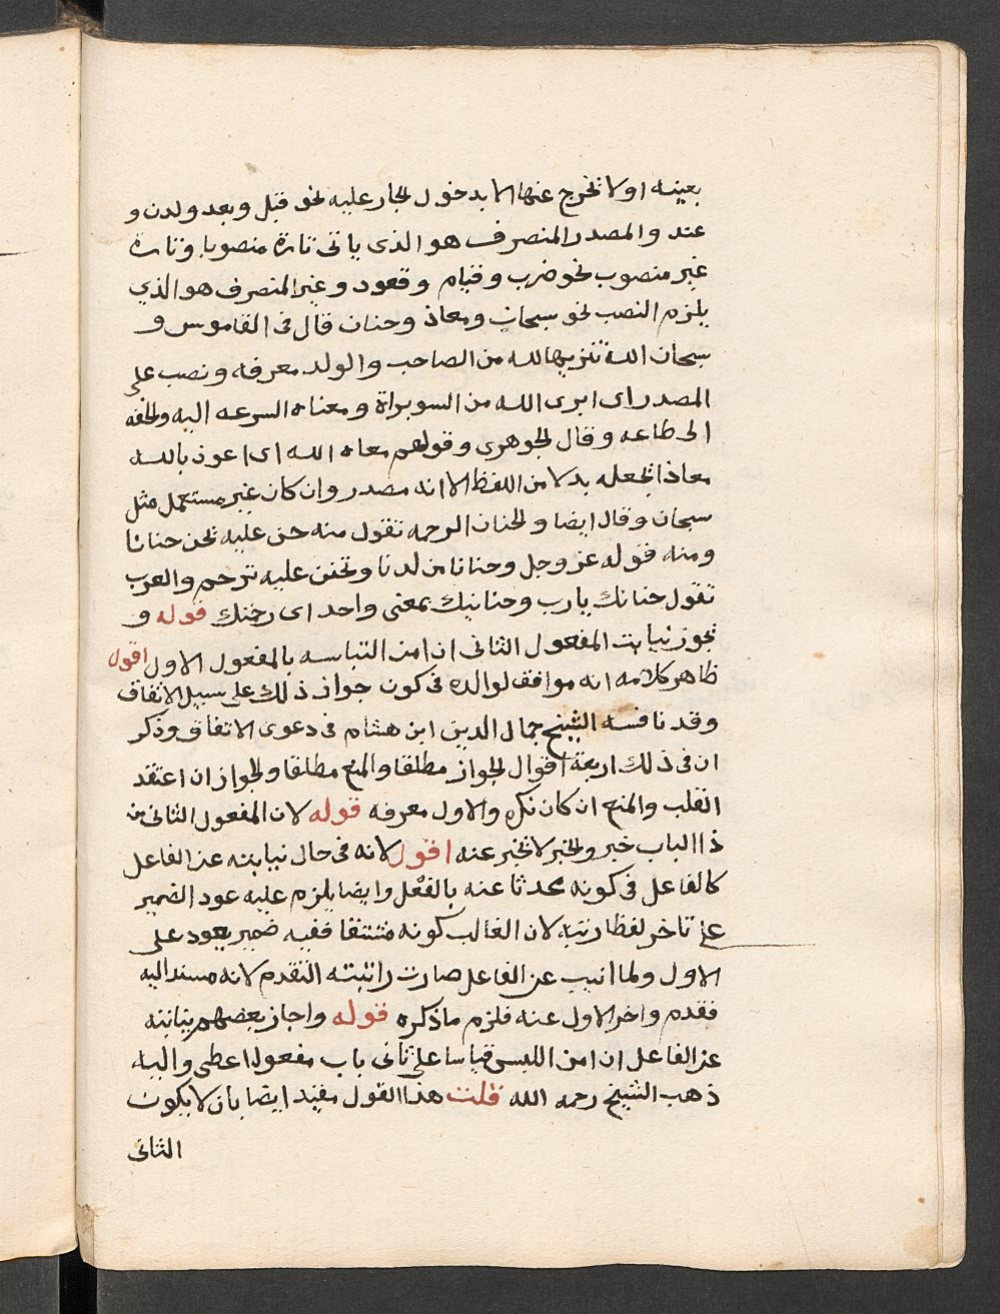 بعينه اولا تخرج عنها الا بدخول الجار عليه نحو قبل وبعد ولدن و
عند والمصدر المنصرف هو الذى ياتى تارة منصوبا وتارة
غير منصوب نحو ضرب وقيام وقعود وغير المنصرف هو الذي
يلزم النصب نحو سبحان ومعاذ وحنان قال فى القاموس و
سبحان الله تنزيها لله من الصاحب والولد معرفه ونصب على
المصدر اى ابرى الله من السو براة ومعناه السرعه اليه والخفه
الى طاعه وقال الجوهرى وقولهم معاه الله اى اعوذ بالله
معاذا تجعله بدلا من اللفظ الا انه مصدر وان كان غير مستعمل مثل
سبحان وقال ايضا والحنان الرحمه تقول منه حن عليه تحن حنانا
ومنه قوله عز وجل وحنانا من لدنا وتحنن عليه ترحم والعرب
تقول حنانك يارب وحنانيك بمعنى واحد اى رحمتك قوله و
تجوز نيابت المفعول الثانى ان امن التباسه بالمفعول الاول اقول
ظاهر كلامه انه موافق لوالده فى كون جواز ذلك على سبيل الاتفاق
وقد نافسه الشيخ جمال الدين ابن هشام فى دعوى الاتفاق وذكر
ان فى ذلك اربعة اقوال الجواز مطلقا والمنع مطلقا والجواز ان اعتقد
القلب والمنع ان كان نكره والاول معرفه قوله لان المفعول الثانى من
ذا الباب خبر والخبر لا تخبر عنه اقول لانه فى حال نيابته عن الفاعل
كالفاعل فى كونه محدثا عنه بالفعل وايضا يلزم عليه عود الضمير
على تاخر لفظا رتبه لان الغالب كونه مشتقا ففيه ضمير يعود على
الاول ولما انيب عن الفاعل صارت راتبته التقدم لانه مسند اليه
فقدم واخر الاول عنه فلزم ما ذكره قوله واجاز بعضهم نيابته
عن الفاعل ان امن اللبس قياسا على ثانى باب مفعولا اعطى واليه
ذهب الشيخ رحمه الله قلت هذا القول مقيد ايضا بان لا يكون
الثانى